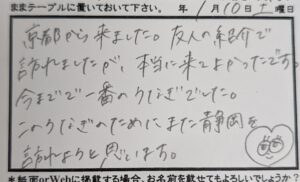 ままテーブルに置いておいて下さい。 年 1月10日土曜日
京都から来ました。友人の紹介で
訪れましたが、本当に来てよかったです。
今までで一番のうなぎでした。
このうなぎのためにまた静岡を
訪れようと思います。
＊紙面orWebに掲載する場合、お名前を載せてもよろしいでしょうか？